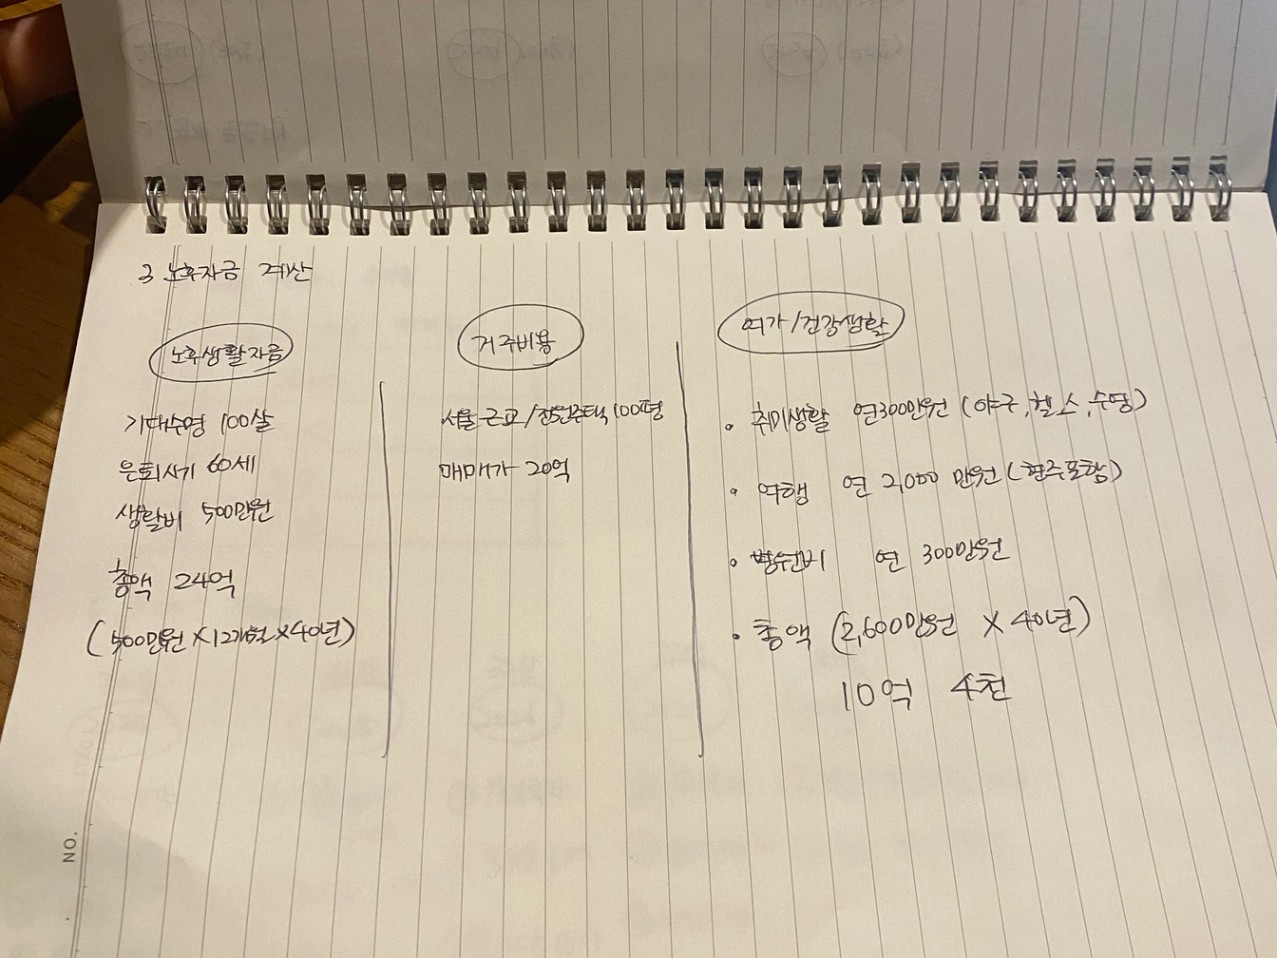 3 노후자금 계산
노후생활자금
기대수명 100살
은퇴시기 60세
생활비 500만원
총액 24억
(500만원 × 12개월 × 40년)
거주비용
서울 근교/전원주택 100평
매매가 20억
여가/건강생활
• 취미생활 연300만원 (야구, 헬스, 수영)
• 여행 연 2,000 만원 (현주포함)
• 병원비 연 300만원
• 총액 (2,600만원 × 40년)
10억 4천
NO.